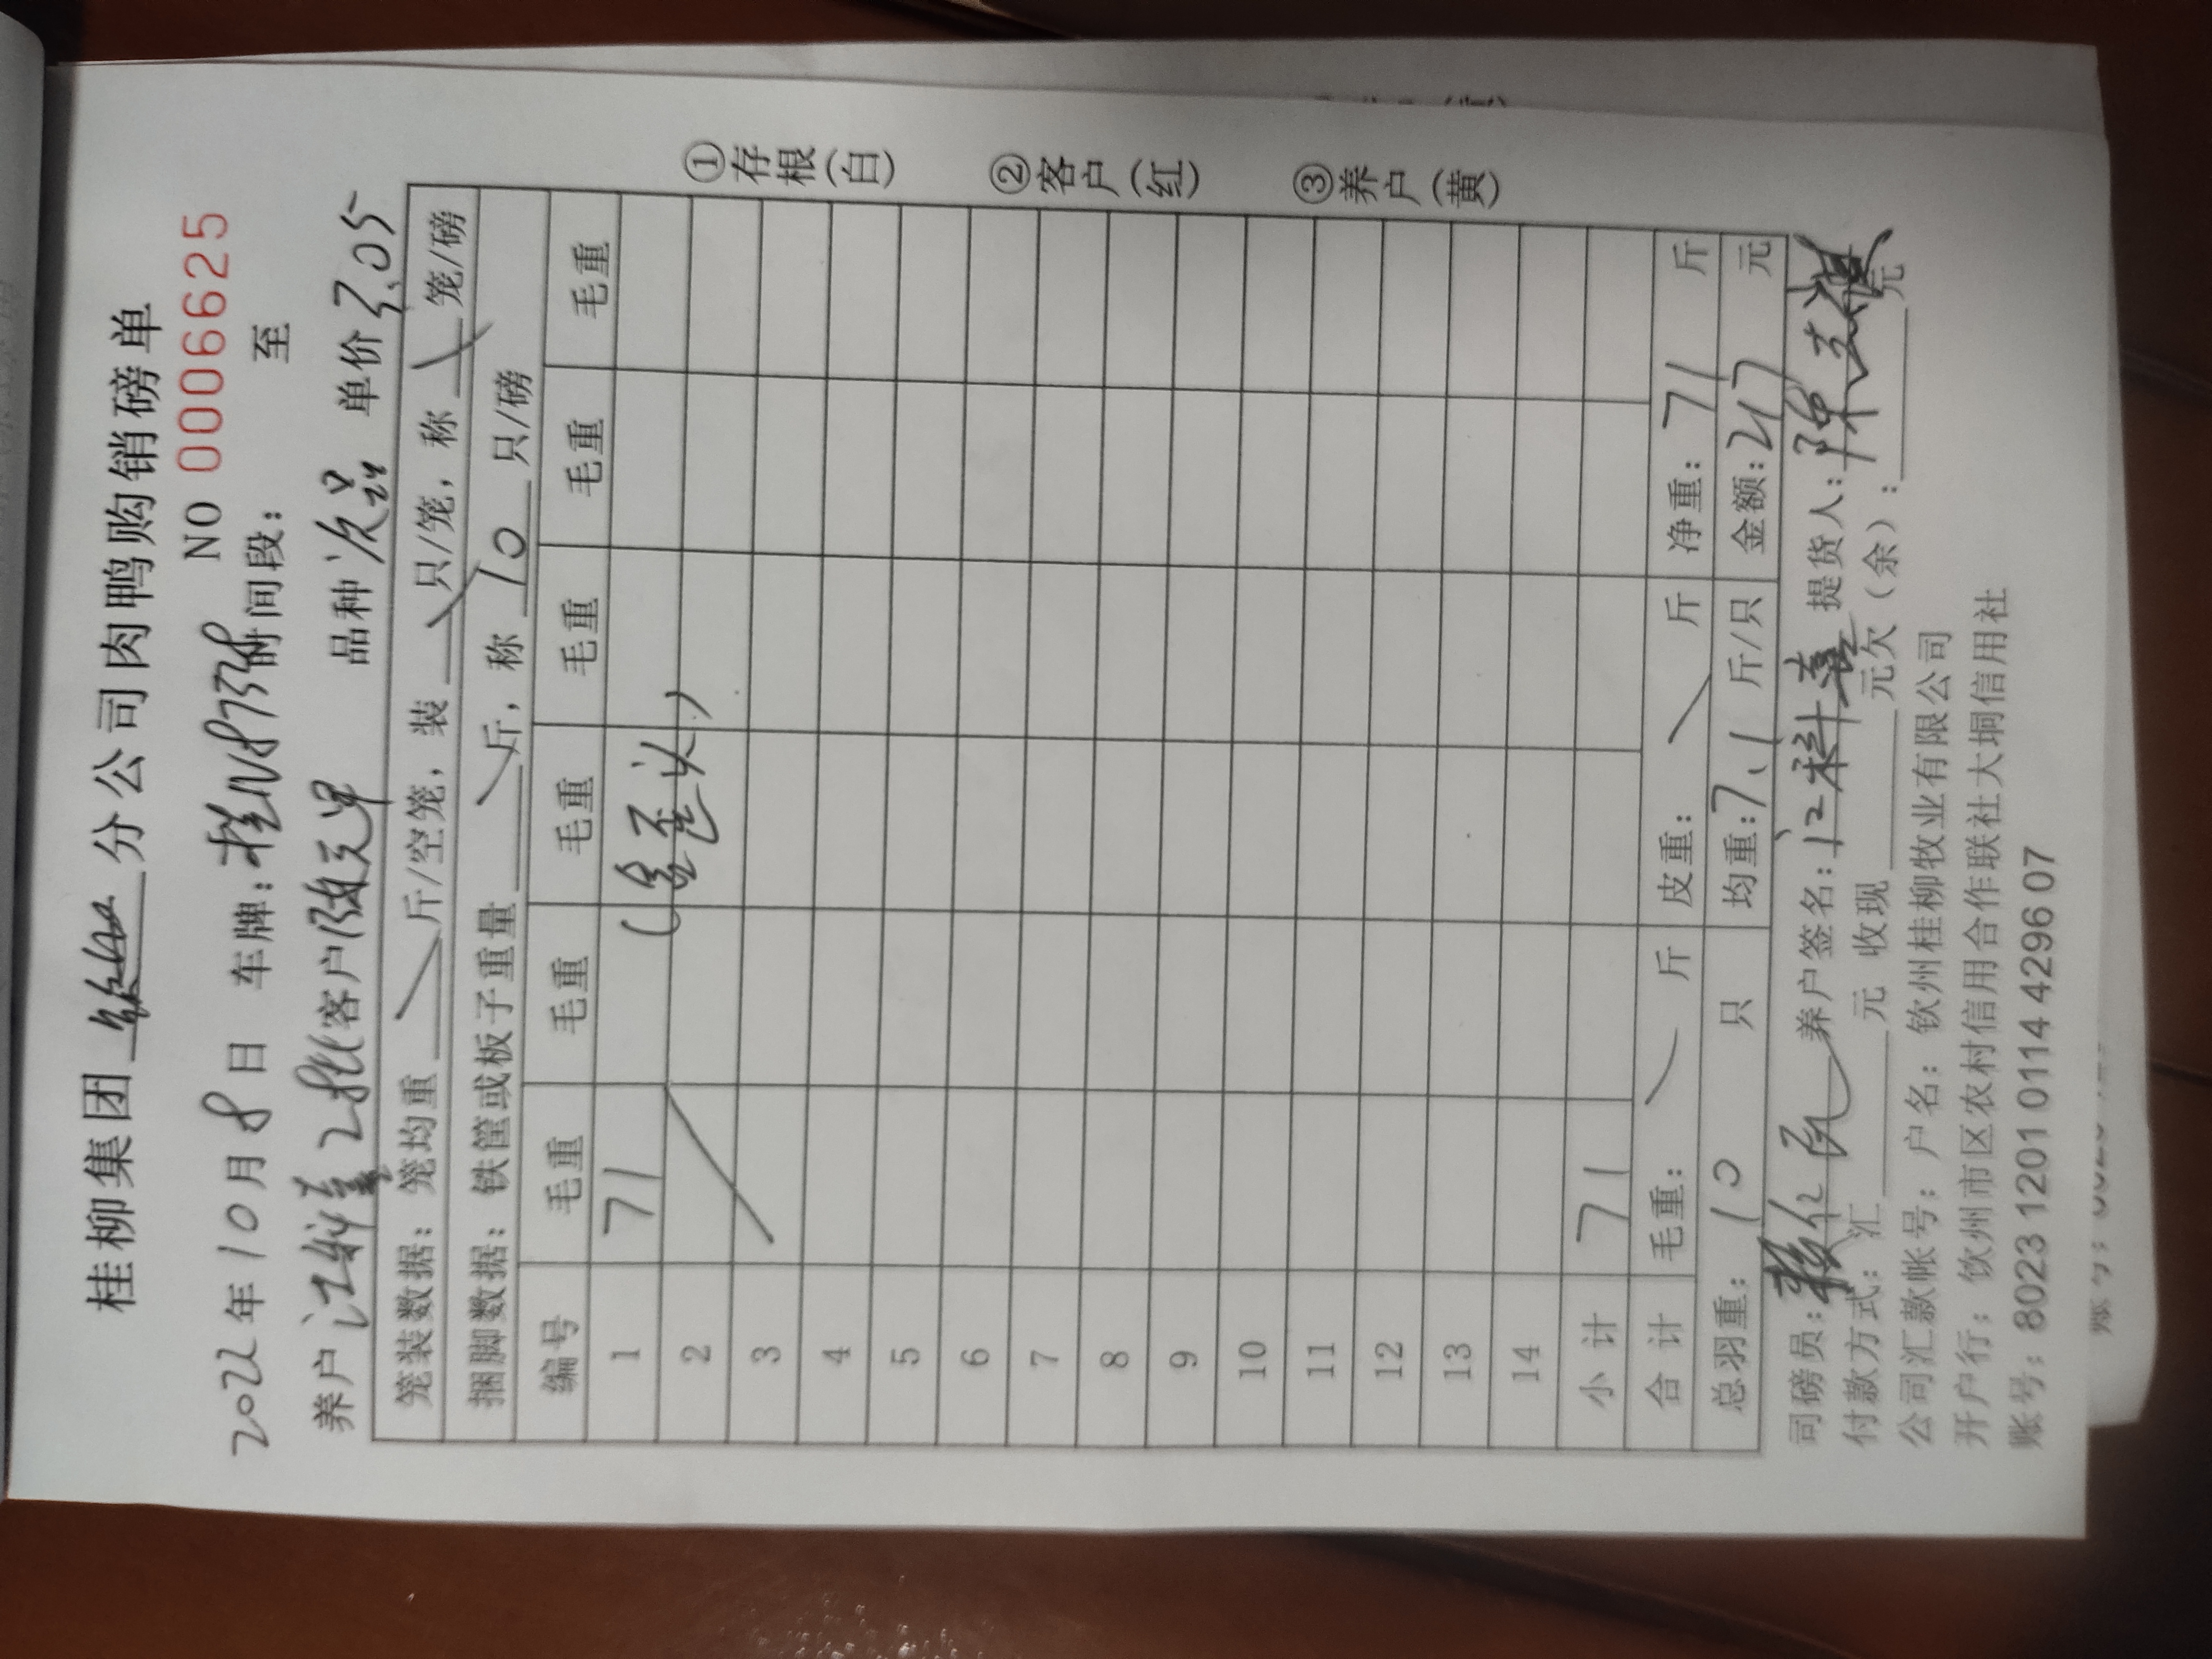 桂柳集团 分公司肉鸭购销磅单
NO 0006625
2022年10月8日 车牌:桂N87738 时间段: 至
养户 江祥喜 2批 客户 陈元军 品种 次品 单价 3.05
笼装数据: 笼均重 斤/空笼, 装 只/笼, 称 笼/磅
捆脚数据: 铁筐或板子重量 斤, 称 10 只/磅
编号 毛重 毛重 毛重 毛重 毛重 毛重
1 71
2 ( 歪头)
3
4
5
6
7
8
9
10
11
12
13
14
小计 71
合计 毛重: 斤 皮重: 斤 净重: 71 斤
总羽重: 10 只 均重: 7.1 斤/只 金额: 217 元
司磅员: 养户签名: 江祥喜 提货人: 陈
付款方式: 汇 元 收现 元欠(余): 元
公司汇款帐号: 户名: 钦州桂柳牧业有限公司
开户行: 钦州市区农村信用合作联社大垌信用社
账号: 8023 1201 0114 4296 07
①存根(白) ②客户(红) ③养户(黄)